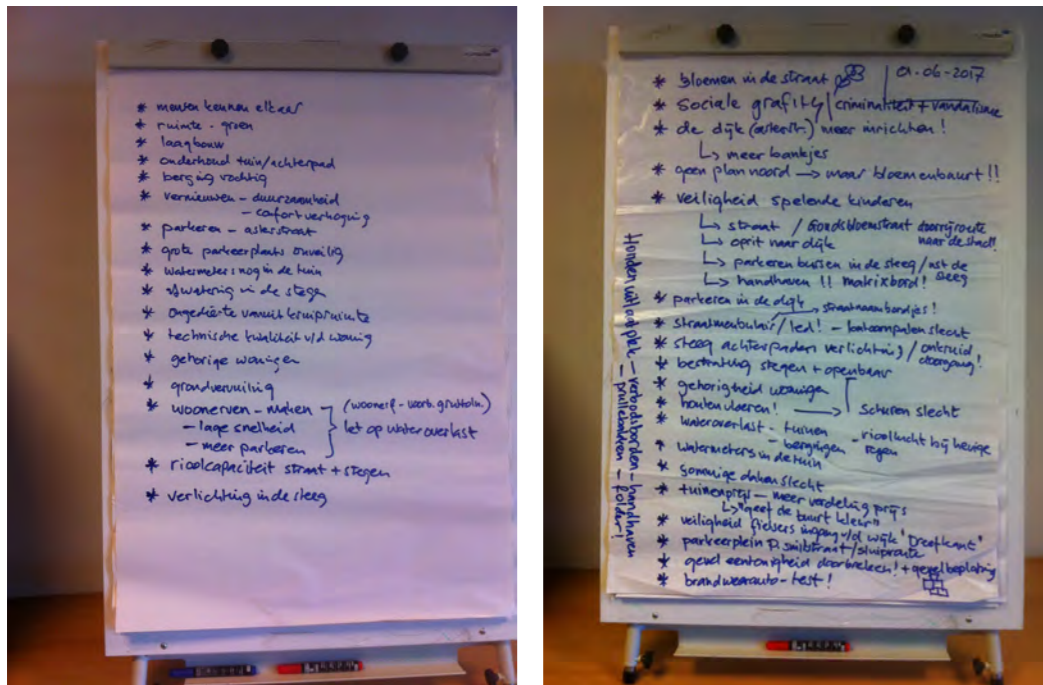 * mensen kennen elkaar
* ruimte - groen
* laagbouw
* onderhoud tuin/achterpad
* berging vochtig
* vernieuwen - duurzaamheid
- comfort verhoging
* parkeren - asterstraat
* grote parkeerplaats onveilig
* watermeters nog in de tuin
* afwatering in de stegen
* ongedierte vanuit kruipruimte
* technische kwaliteit v/d woning
* gehorige woningen
* grondvervuiling
* woonerven - maken (woonerf -
- lage snelheid let op wateroverlast
- meer parkeren
* rioolcapaciteit straat + stegen
* verlichting in de steeg
* bloemen in de straat 01-06-2017
* sociale grafity / criminaliteit + vandalisme
* de dijk (asterstr.) meer inrichten!
↳ meer bankjes
* geen plan noord → maar bloemenbuurt!!
* veiligheid spelende kinderen
↳ straat / Goudsbloemstraat doorrijroute
naar de stad!!
↳ oprit naar dijk
↳ parkeren bussen in de steeg / uit de
steeg
↳ handhaven !! matrixbord!
* parkeren in de dijk → straatnaambordjes!
* straatmeubulair/led! - lantaarnpalen slecht
* steeg achterpaden verlichting / onkruid
doorgang!
* bestrating stegen + openbaar
* gehorigheid woningen
* houten vloeren! → schuren slecht
* wateroverlast - tuinen
- bergingen - rioollucht bij hevige
regen
* watermeters in de tuin
* sommige daken slecht
* tuinenprijs - meer verdeling prijs
↳ "geef de buurt kleur"
* veiligheid fietsers ingang v/d wijk "Dreefkant"
* parkeerplein P. smitstraat/sluiproute
* gevel eentonigheid doorbreken! + gevelbeplating
* brandweerauto - test!
Honden uitlaatplek - verbodsborden - handhaven
- prullebakken - folder!